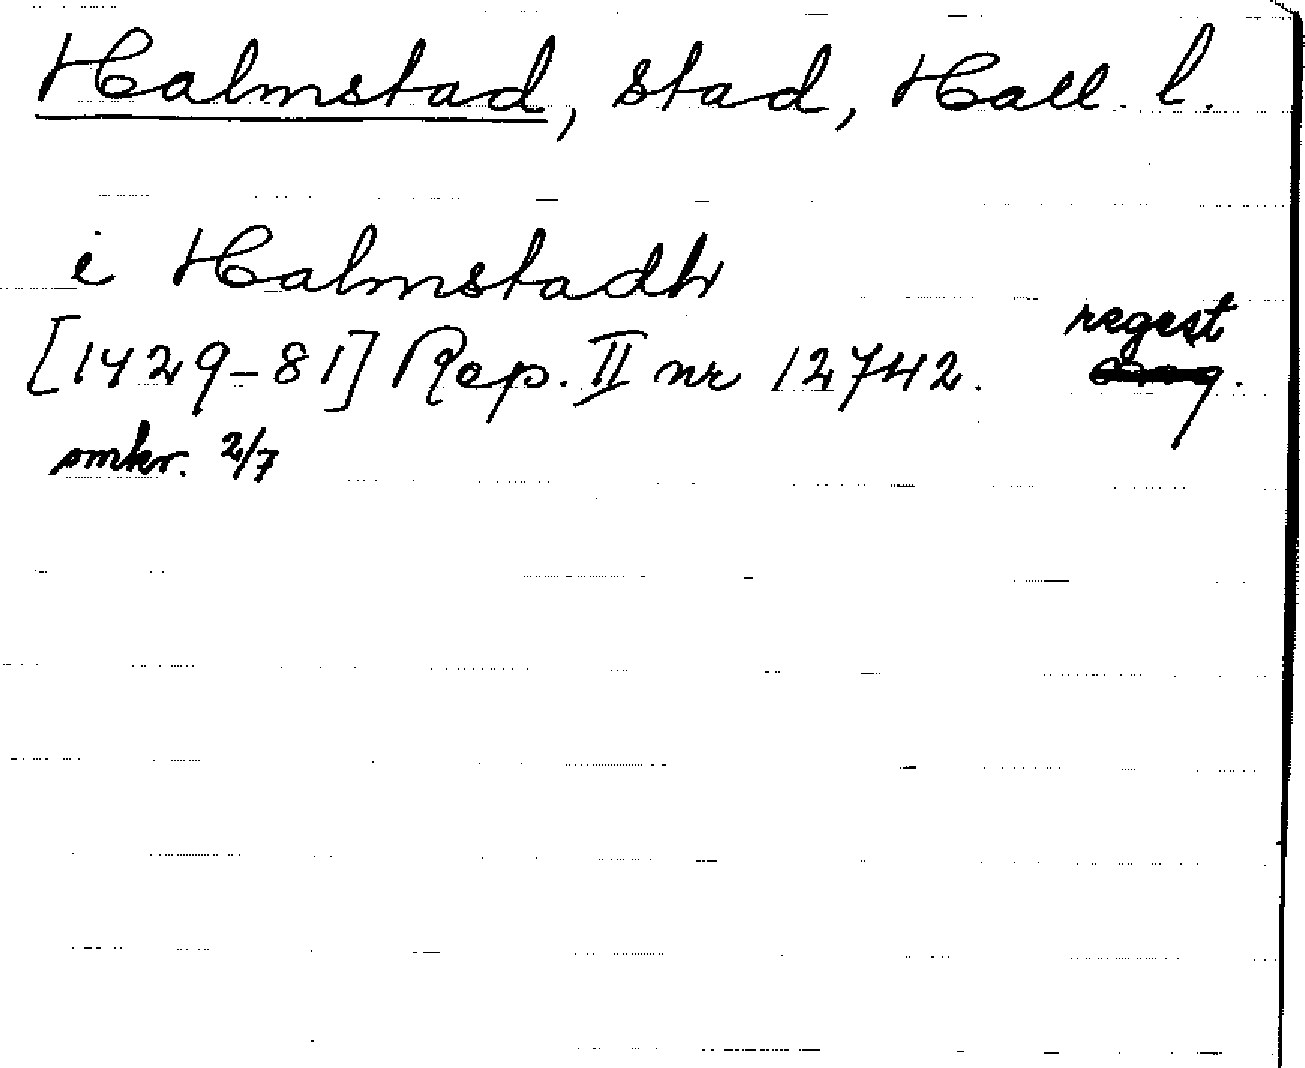 Halmstad, stad, Hall. l.
i Halmstadh
regest
[1429-81] Rep. II nr 12742.
smkr. 2/7